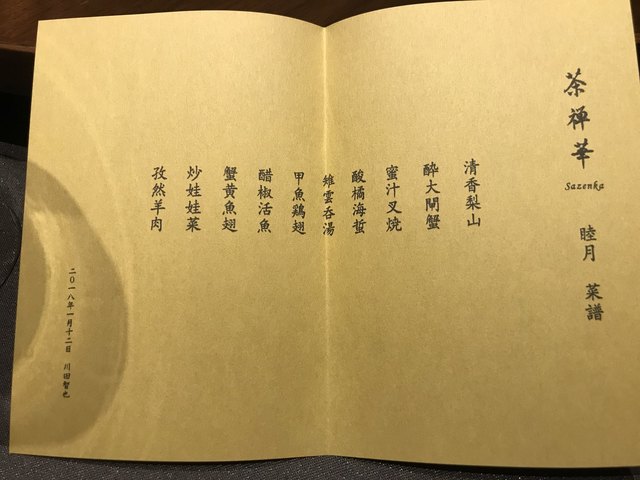 茶禅華
Sazenka
睦月 菜譜
清香梨山
酔大閘蟹
蜜汁叉焼
酸橘海蜇
雉雲呑湯
甲魚鶏翅
醋椒活魚
蟹黄魚翅
炒娃娃菜
孜然羊肉
二〇一八年一月十二日 川田智也